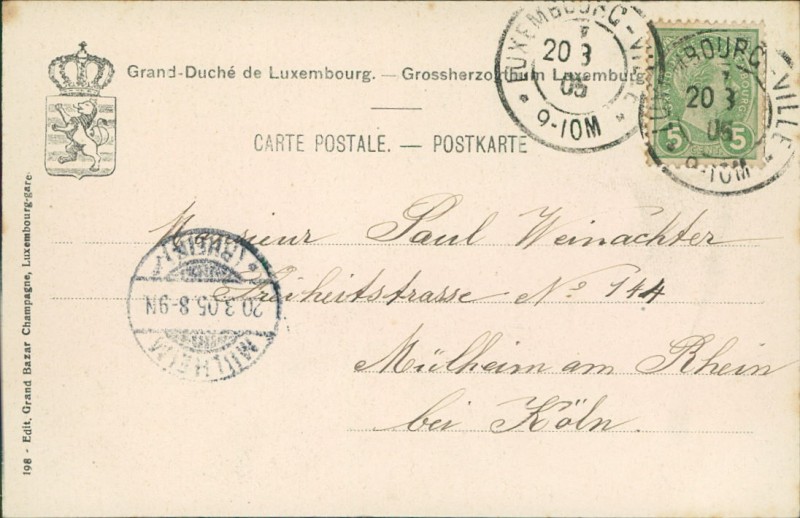 Grand-Duché de Luxembourg. — Grossherzogthum Luxemburg
CARTE POSTALE. — POSTKARTE
LUXEMBOURG-VILLE
20 3
05
9-10M
LUXEMBOURG-VILLE
20 3
05
9-10M
5 5
Monsieur Paul Weinachter
Freiheitstrasse No 144
Mülheim am Rhein
bei Köln.
MÜLHEIM
20.3.05.8-9N
(RHEIN)
198 - Edit. Grand Bazar Champagne, Luxembourg-gare.